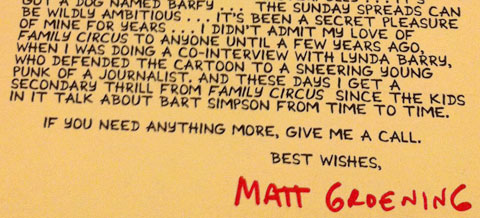 GOT A DOG NAMED BARFY . . . THE SUNDAY SPREADS CAN
BE WILDLY AMBITIOUS . . . IT'S BEEN A SECRET PLEASURE
OF MINE FOR YEARS . . . I DIDN'T ADMIT MY LOVE OF
FAMILY CIRCUS TO ANYONE UNTIL A FEW YEARS AGO,
WHEN I WAS DOING A CO-INTERVIEW WITH LYNDA BARRY,
WHO DEFENDED THE CARTOON TO A SNEERING YOUNG
PUNK OF A JOURNALIST. AND THESE DAYS I GET A
SECONDARY THRILL FROM FAMILY CIRCUS SINCE THE KIDS
IN IT TALK ABOUT BART SIMPSON FROM TIME TO TIME.
IF YOU NEED ANYTHING MORE, GIVE ME A CALL.
BEST WISHES,
MATT GROENING